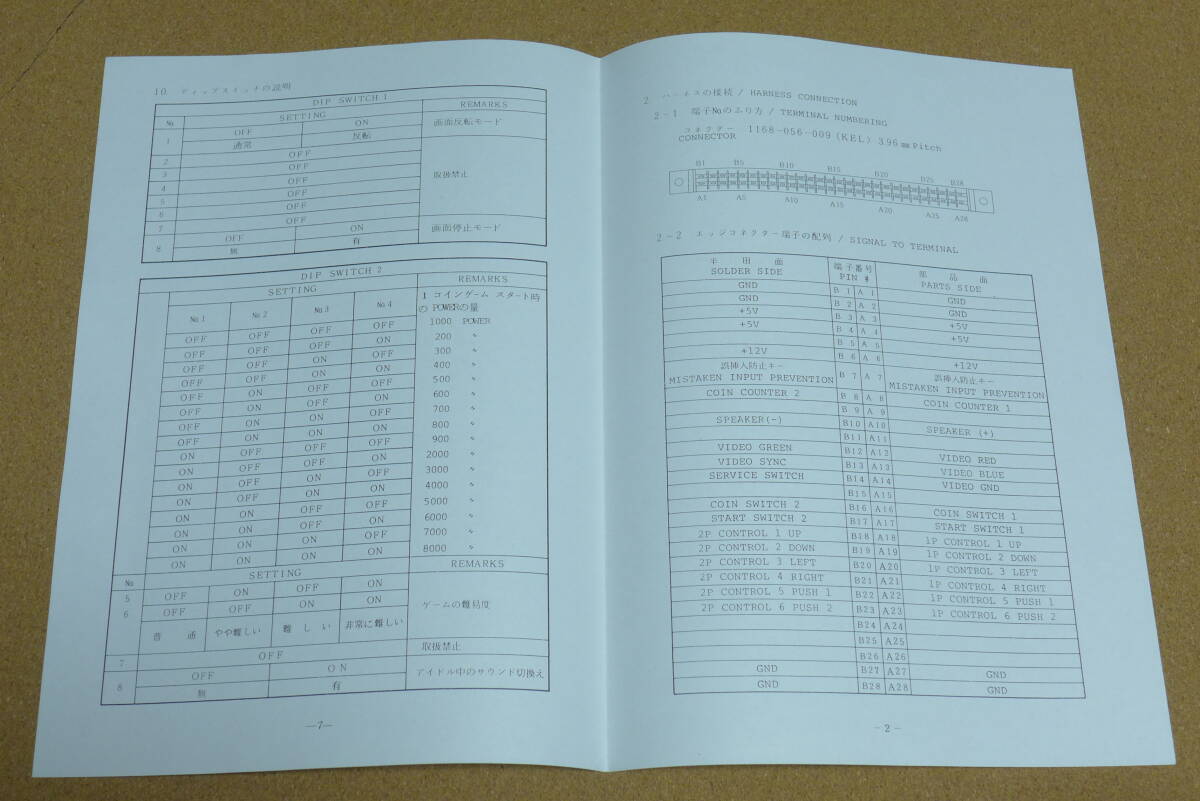 10. ディップスイッチの説明
DIP SWITCH 1
№ SETTING REMARKS
1 OFF ON 画面反転モード
通常 反転
2 OFF
3 OFF
4 OFF 取扱禁止
5 OFF
6 OFF
7 OFF
8 OFF ON 画面停止モード
無 有
DIP SWITCH 2
SETTING REMARKS
№1 №2 №3 №4 1 コインゲーム スタート時
の POWERの量
OFF OFF OFF OFF 1000 POWER
OFF OFF OFF ON 200 〃
OFF OFF ON OFF 300 〃
OFF OFF ON ON 400 〃
OFF ON OFF OFF 500 〃
OFF ON OFF ON 600 〃
OFF ON ON OFF 700 〃
OFF ON ON ON 800 〃
ON OFF OFF OFF 900 〃
ON OFF OFF ON 2000 〃
ON OFF ON OFF 3000 〃
ON OFF ON ON 4000 〃
ON ON OFF OFF 5000 〃
ON ON OFF ON 6000 〃
ON ON ON OFF 7000 〃
ON ON ON ON 8000 〃
№ SETTING REMARKS
5 OFF ON OFF ON
6 OFF OFF ON ON ゲームの難易度
普通 やや難しい 難しい 非常に難しい
7 OFF 取扱禁止
8 OFF ON アイドル中のサウンド切換え
無 有
—7—
2 ハーネスの接続 / HARNESS CONNECTION
2-1 端子№のふり方 / TERMINAL NUMBERING
コネクター
CONNECTOR 1168-056-009 (KEL) 3.96㎜Pitch
B1 B5 B10 B15 B20 B25 B28
A1 A5 A10 A15 A20 A25 A28
2-2 エッジコネクター端子の配列 / SIGNAL TO TERMINAL
半田面 端子番号 部品面
SOLDER SIDE PIN # PARTS SIDE
GND B 1 A 1 GND
GND B 2 A 2 GND
+5V B 3 A 3 +5V
+5V B 4 A 4 +5V
B 5 A 5
+12V B 6 A 6 +12V
誤挿入防止キー B 7 A 7 誤挿入防止キー
MISTAKEN INPUT PREVENTION MISTAKEN INPUT PREVENTION
COIN COUNTER 2 B 8 A 8 COIN COUNTER 1
B 9 A 9
SPEAKER(-) B10 A10 SPEAKER (+)
B11 A11
VIDEO GREEN B12 A12 VIDEO RED
VIDEO SYNC B13 A13 VIDEO BLUE
SERVICE SWITCH B14 A14 VIDEO GND
B15 A15
COIN SWITCH 2 B16 A16 COIN SWITCH 1
START SWITCH 2 B17 A17 START SWITCH 1
2P CONTROL 1 UP B18 A18 1P CONTROL 1 UP
2P CONTROL 2 DOWN B19 A19 1P CONTROL 2 DOWN
2P CONTROL 3 LEFT B20 A20 1P CONTROL 3 LEFT
2P CONTROL 4 RIGHT B21 A21 1P CONTROL 4 RIGHT
2P CONTROL 5 PUSH 1 B22 A22 1P CONTROL 5 PUSH 1
2P CONTROL 6 PUSH 2 B23 A23 1P CONTROL 6 PUSH 2
B24 A24
B25 A25
B26 A26
GND B27 A27 GND
GND B28 A28 GND
-2-